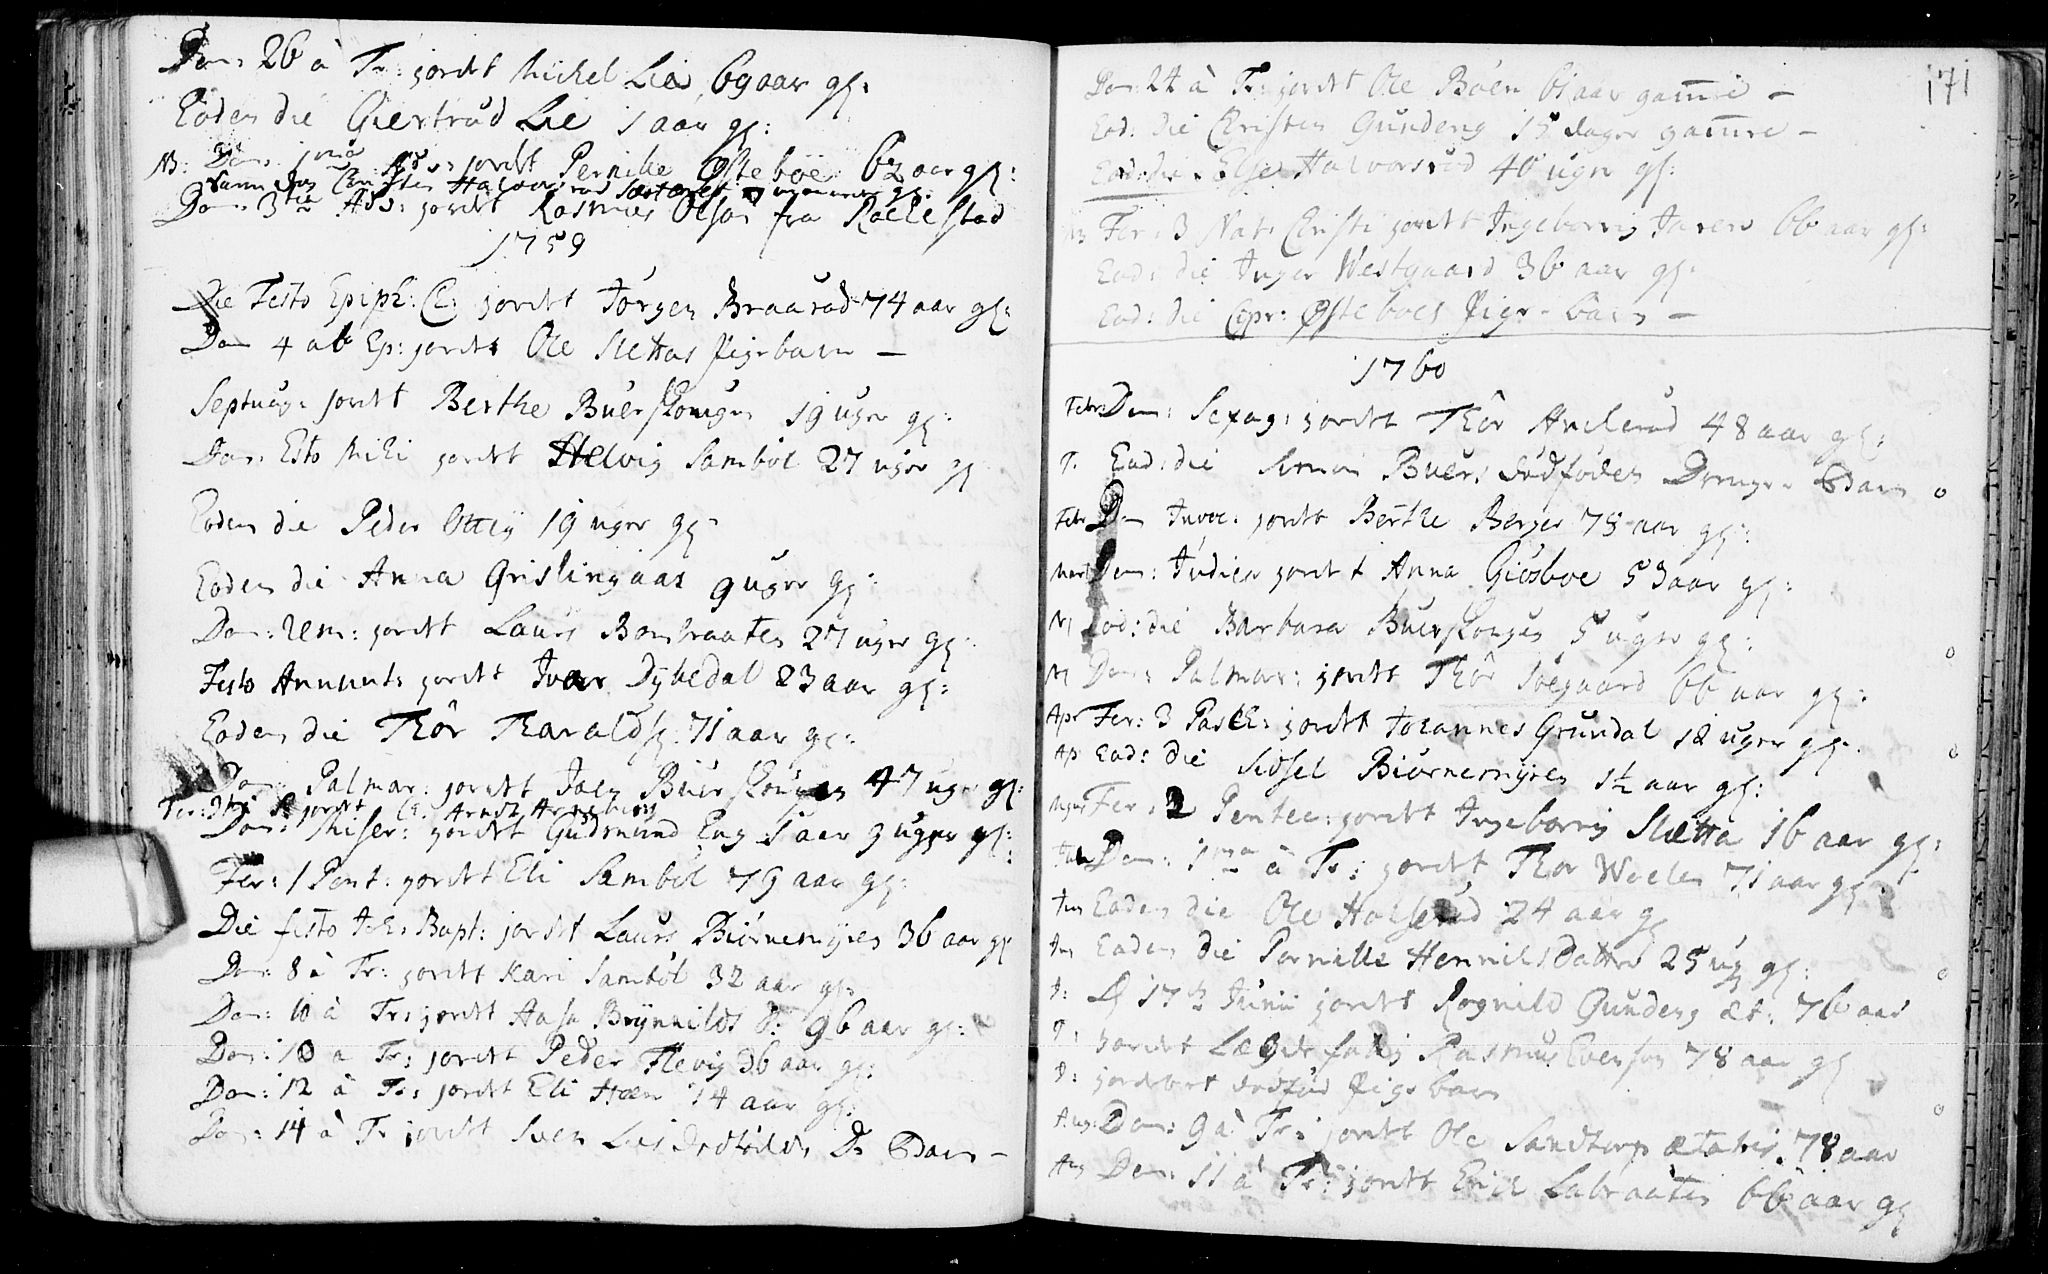 Dom: 26 à Tr: jordt Michel Lie, 69 aar gl:
Eodem die Giertrud Lie 1 aar gl:
NB: Dom: 1ma Adv: jordt Pernille Østeboe 63 aar gl:
samme dag Christen Halvorsrud
Dom: 3tia Adv: jordt Rasmus Olsøn fra Rachestad
1759
Die Festo Epiph: C: jordt Jørgen Braarud 74 aar gl:
Dom 4 ab Ep: jordt Ole Slettas Pigebarn —
Septuag: jordt Berthe Buerskougen 19 uger gl:
Dom: Esto Mihi jordt Helvig Sambøl 27 uger gl
Eodem die Peder Ottey 19 uger gl:
Eodem die Anna Grislingaas 9 uger gl:
Dom: Rem: jordt Laurs Bombraaten 27 uger gl:
Festo Annunt: jordt Iver Dybedal 23 aar gl:
Eodem die Thór Tharalds: 71 aar gl:
Dom: Palmar: jordt Joen Buerskougen 47 uger gl:
Fer: 3tia P jordt C: Arndt Arneberg
Dom: Miser: jordt Gudmund Eng 1 aar 9 uger gl:
Fer: 1 Pent: jordt Eli Sambøl 79 aar gl:
Die festo Joh: Bapt: jordt Laurs Biørnemyren 36 aar gl
Dom: 8 à Tr: jordt Kari Sambøl 32 aar gl:
Dom: 10 à Tr: jordt Aase Brynnilds d: 96 aar gl:
Dom: 10 a Tr: jordt Peder Flevig 36 aar gl:
Dom: 12 à Tr: jordt Eli Hæn 74 aar gl:
Dom: 14 à Tr jordt Sven Lies dødfødde D: Barn —
171
Dom: 24 à Tr: jordt Ole Boen 61 aar gam̅el —
Eod: die Christen Gundeng 15 dager gam̅el —
Eod: die Else Halvorsrud 40 uger gl:
NB Fer: 3 Nat: Christi jordt Ingeborrig Jaren 66 aar gl:
Eod: die Inger Westgaard 36 aar gl:
Eod: die Chr: Østeboes Pige-barn —
1760
Febr Dom: Sexag: jordt Thór Avelsrud 48 aar gl:
F. Eod: die Simon Buers dødføden Drenge-Barn o
Febr Dom Invoc: jordt Berthe Berger 75 aar gl:
Mart Dom: Judica jordt Anna Giósboe 53 aar gl:
M Eod: die Barbara Buerskougen 5 uger gl: o
M Dom: Palmar: jordt Thór Soegaard 66 aar gl:
Apr Fer: 3 Pasch: jordt Johannes Grundal 12 uger gl: o
Ap Eod: die Sidsel Biørnemyren 1½ aar gl:
Fer: 2 Pentec: jordt Ingeborrig Sletta 16 aar gl:
Jun Dom: 1ma à Tr: jordt Thor Weelen 71 aar gl:
Jun Eodem die Ole Holserud 24 aar gl
Jun Eodem die Pernille Henrichsdatter 25 ug gl: o
J: D 17de Junii jordt Rognild Gundeng æt: 76 aar
J: Jordet Lægdsfattig Rasmus Evensøn 78 aar gl
J: jordet dødfød Pigebarn o
Aug: Dom: 9 à Tr: jordt Ole Sandtorp ætatis 78 aar
Aug Dom: 11 à Tr: jordt Erich Labraaten 66 aar gl